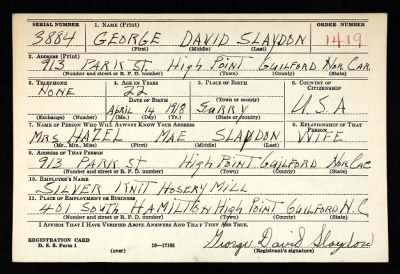 SERIAL NUMBER 1. NAME (Print) ORDER NUMBER
3884 GEORGE DAVID SLAYDON 1419
(First) (Middle) (Last)
2. ADDRESS (Print)
913 PARK ST High Point GUILFORD Nor CAR
(Number and street or R. F. D. number) (Town) (County) (State)
3. TELEPHONE 4. AGE IN YEARS 5. PLACE OF BIRTH 6. COUNTRY OF CITIZENSHIP
NONE 22
DATE OF BIRTH (Town or county)
APRIL 14 1918 SURRY U.S.A
(Exchange) (Number) (Mo.) (Day) (Yr.) (State or country)
7. NAME OF PERSON WHO WILL ALWAYS KNOW YOUR ADDRESS 8. RELATIONSHIP OF THAT PERSON
MRS HAZEL MAE SLAYDON WIFE
(Mr., Mrs., Miss) (First) (Middle) (Last)
9. ADDRESS OF THAT PERSON
913 PARK ST High Point GUILFORD Nor CAR
(Number and street or R. F. D. number) (Town) (County) (State)
10. EMPLOYER'S NAME
SILVER KNIT HOSERY MILL
11. PLACE OF EMPLOYMENT OR BUSINESS
401 SOUTH HAMILTON High Point GUILFORD N.C
(Number and street or R. F. D. number) (Town) (County) (State)
I AFFIRM THAT I HAVE VERIFIED ABOVE ANSWERS AND THAT THEY ARE TRUE.
REGISTRATION CARD
D. S. S. Form 1 (over) 16—17105
George David Slaydon
(Registrant's signature)